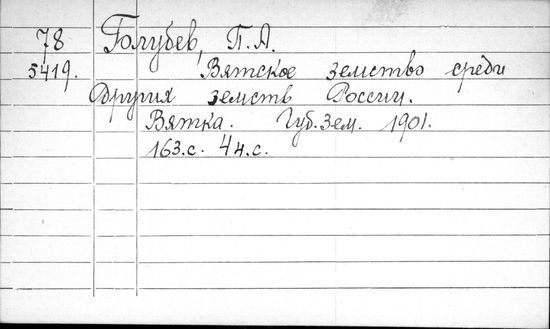 78 Голубев, П. А.
5419. Вятское земство среди
других земств России.
Вятка. Губ. Зем. 1901.
163.с. 4 н.с.